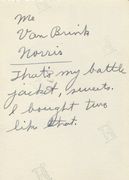 Me
Van Brink
Norris
That's my battle
jacket, sweets.
I bought two
like that.